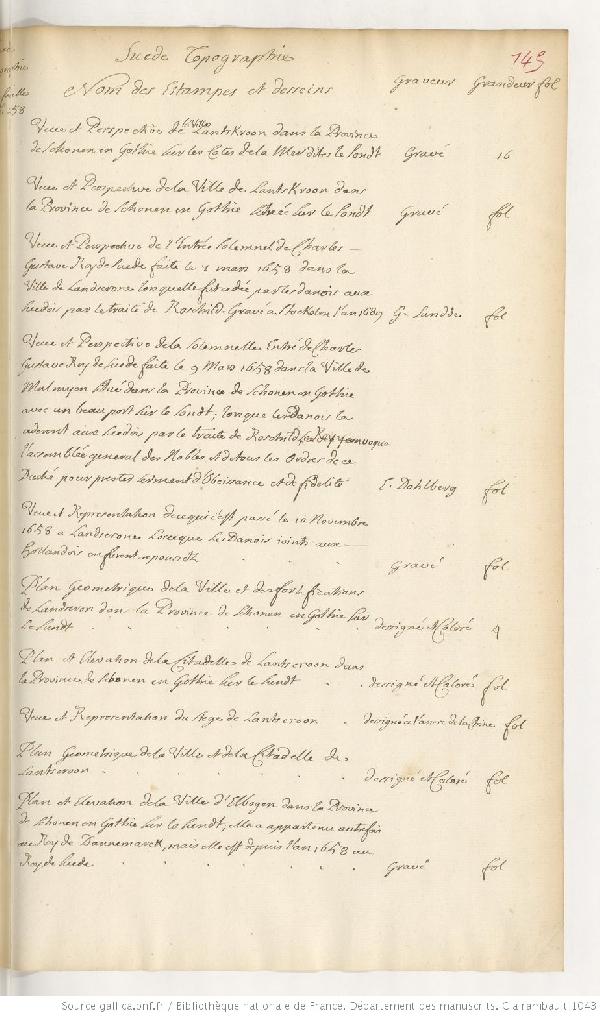 Suede Topographie
149
Nom des Estampes et desseins Graveurs Grandeur fol
Veue et Perspective de la Ville Lantskroon dans la Province
de Schonen en Gothie sur les Cotes de la Mer dites le Sondt Gravé 16
Veue et Perspective de la Ville de Lantskroon dans
la Province de Schonen en Gothie située sur le Sondt Gravé fol
Veue et Perspective de l'Entrée Solemnel de Charles
Gustave Roy de Suede faite le 1 mars 1658 dans la
Ville de Landscronne lorsquelle fut cedée par les danois aux
suedois par le traité de Roschild. Gravé a Stocholm l'an 1689 G. fol
Veue et Perspective de la Solemnelle Entrée de Charles
Gustave Roy de Suede faite le 9 Mars 1658 dans la Ville de
situé dans la Province de Schonen en Gothie
avec un beau port sur le Sondt, lorque les danois la
cederent aux suedois par le traite de Roschild
l'assemblée general des Nobles et de tous les Ordres de ce
Duché pour prester serment d'Obeissance et de fidelité E. Dahlberg fol
Veue et Representation de ce qui c'est passé le 10 Novembre
1658 a Landscrone Lorsque les Danois joints aux
Hollandois en furent repoussez Gravé fol
Plan Geometrique de la Ville et des fortifications
de Landscron dans la Province de Schonen en Gothie sur
le Sundt dessigné et Coloré 4
Plan et Elevation de la Citadelle de Lantscroon dans
la Province de Schonen en Gothie sur le Sundt dessigné et Coloré fol
Veue et Representation du Siege de Lantscroon dessigné a l'ancre de la Chine fol
Plan Geometrique de la Ville et de la Citadelle de
Lantscroon dessigné et Coloré fol
Plan et Elevation de la Ville d'Elbogen dans la Province
de Schonen en Gothie sur le Sundt, elle a appartenu autrefois
au Roy de Dannemarck, mais elle est depuis l'an 1658 au
Roy de Suede Gravé fol
Source gallica.bnf.fr / Bibliothèque nationale de France. Département des manuscrits. Clairambault 1043